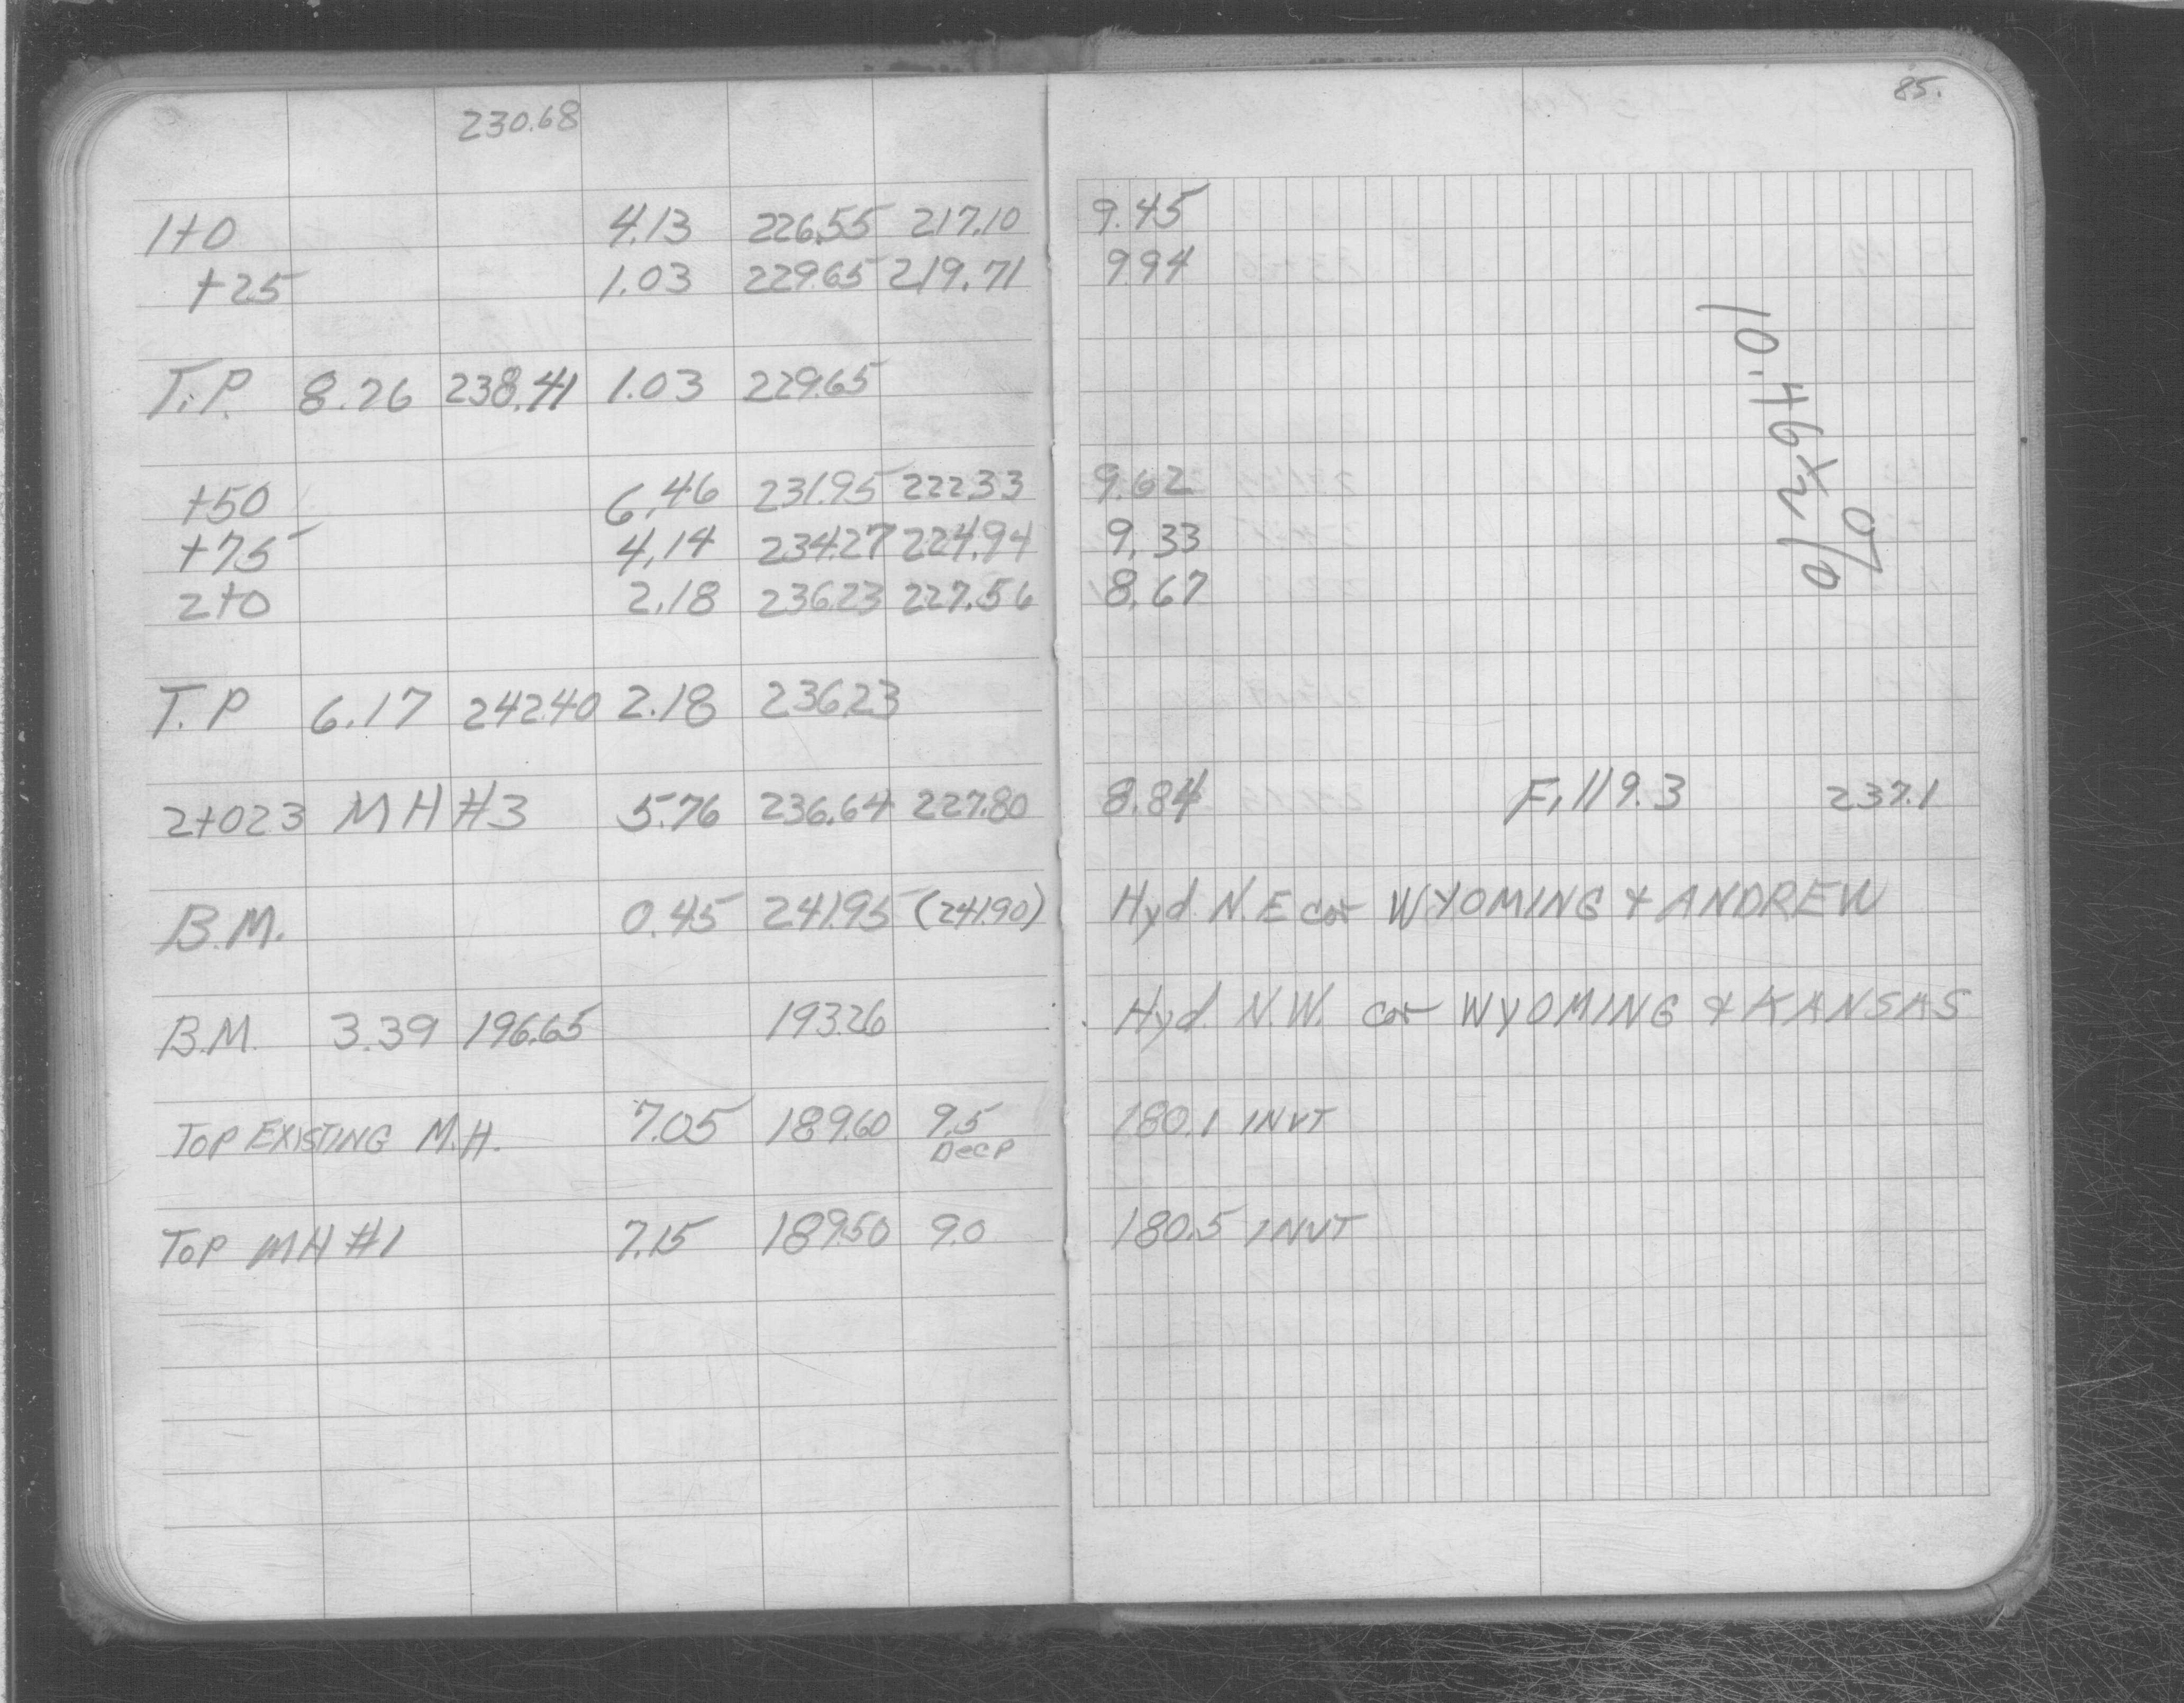 85.
230.68
1+0 4.13 226.55 217.10 9.45
+25 1.03 229.65 219.71 9.94
T.P. 8.26 238.41 1.03 229.65
+50 6.46 231.95 222.33 9.62
+75 4.14 234.27 224.94 9.33
2+0 2.18 236.23 227.56 8.67
10.462%
T.P 6.17 242.40 2.18 236.23
2+023 MH #3 5.76 236.64 227.80 8.84 Fill 9.3 237.1
B.M. 0.45 241.95 (241.90) Hyd N.E cor WYOMING & ANDREW
B.M. 3.39 196.65 193.26 Hyd. N.W. cor WYOMING & KANSAS
TOP EXISTING M.H. 7.05 189.60 9.5 180.1 INVT
DeeP
TOP MH #1 7.15 189.50 9.0 180.5 INVT